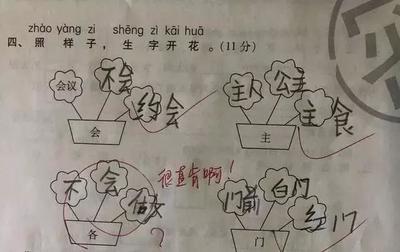 zhào yàng zi    shēng zì kāi huā
四、照 样 子，生 字 开 花 。(11 分)
会议 不会 约会
会
主人 公主 主食
主
很直肯啊！
不 会 做
各
?
门前 白门 红门
门